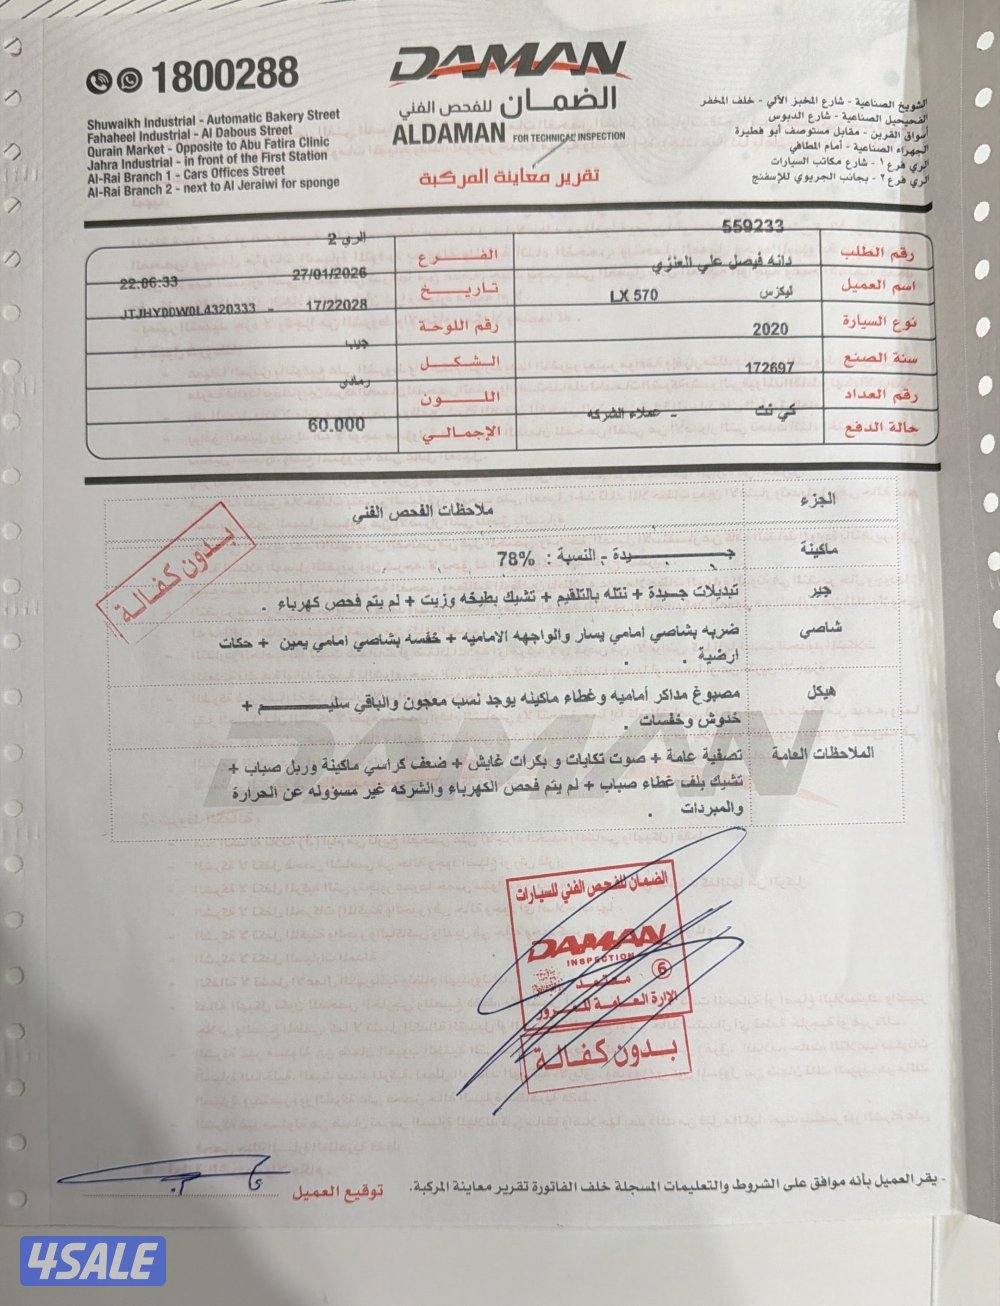 1800288
DAMAN
الضمان للفحص الفني
ALDAMAN FOR TECHNICAL INSPECTION
تقرير معاينة المركبة
Shuwaikh Industrial - Automatic Bakery Street
Fahaheel Industrial - Al Dabous Street
Qurain Market - Opposite to Abu Fatira Clinic
Jahra Industrial - in front of the First Station
Al-Rai Branch 1 - Cars Offices Street
Al-Rai Branch 2 - next to Al Jeraiwi for sponge
الشويخ الصناعية - شارع المخبز الآلي - خلف المخفر
الفحيحيل الصناعية - شارع الدبوس
أسواق القرين - مقابل مستوصف أبو فطيرة
الجهراء الصناعية - أمام المطافي
الري فرع ١ - شارع مكاتب السيارات
الري فرع ٢ - بجانب الجريوي للإسفنج
رقم الطلب 559233 الفرع الري 2
اسم العميل دانه فيصل علي العنزي تاريخ 27/01/2026 22:06:33
نوع السيارة ليكزس LX 570 رقم اللوحة 17/22028 - JTJHY00W0L4320333
سنة الصنع 2020 الشكل جيب
رقم العداد 172697 اللون رمادي
حالة الدفع كي نت - عملاء الشركه الإجمالي 60.000
الجزء ملاحظات الفحص الفني
بدون كفالة
ماكينة جــيدة - النسبة : 78%
جير تبديلات جيدة + نتله بالتلقيم + تشيك بطيخه وزيت + لم يتم فحص كهرباء .
شاصي ضربه بشاصي امامي يسار والواجهه الاماميه + خفسه بشاصي امامي يمين + حكات
ارضية .
هيكل مصبوغ مداكر أماميه وغطاء ماكينه يوجد نسب معجون والباقي سليــم +
خدوش وخفسات .
الملاحظات العامة تصفية عامة + صوت تكايات و بكرات غايش + ضعف كراسي ماكينة وربل صباب +
تشيك بلف غطاء صباب + لم يتم فحص الكهرباء والشركه غير مسؤوله عن الحرارة
والمبردات .
الضمان للفحص الفني للسيارات
DAMAN
INSPECTION
معتمد 6
الإدارة العامة للمرور
بدون كفالة
- يقر العميل بأنه موافق على الشروط والتعليمات المسجلة خلف الفاتورة تقرير معاينة المركبة.
توقيع العميل
4SALE